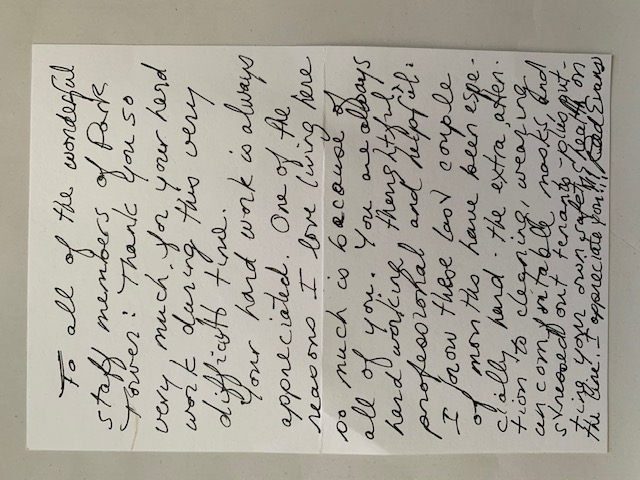 To all of the wonderful
staff members of Park
Tower! Thank you so
very much for your hard
work during this very
difficult time.
Your hard work is always
appreciated. One of the
reasons I love living here
so much is because of
all of you. You are always
hard working, thoughtful,
professional and helpful.
I know these last couple
of months have been espe-
cially hard - the extra atten-
tion to cleaning, wearing
uncomfortable masks and
stressed out tenants - plus put-
ting your own safety & health on
the line. I appreciate you!!! Evans